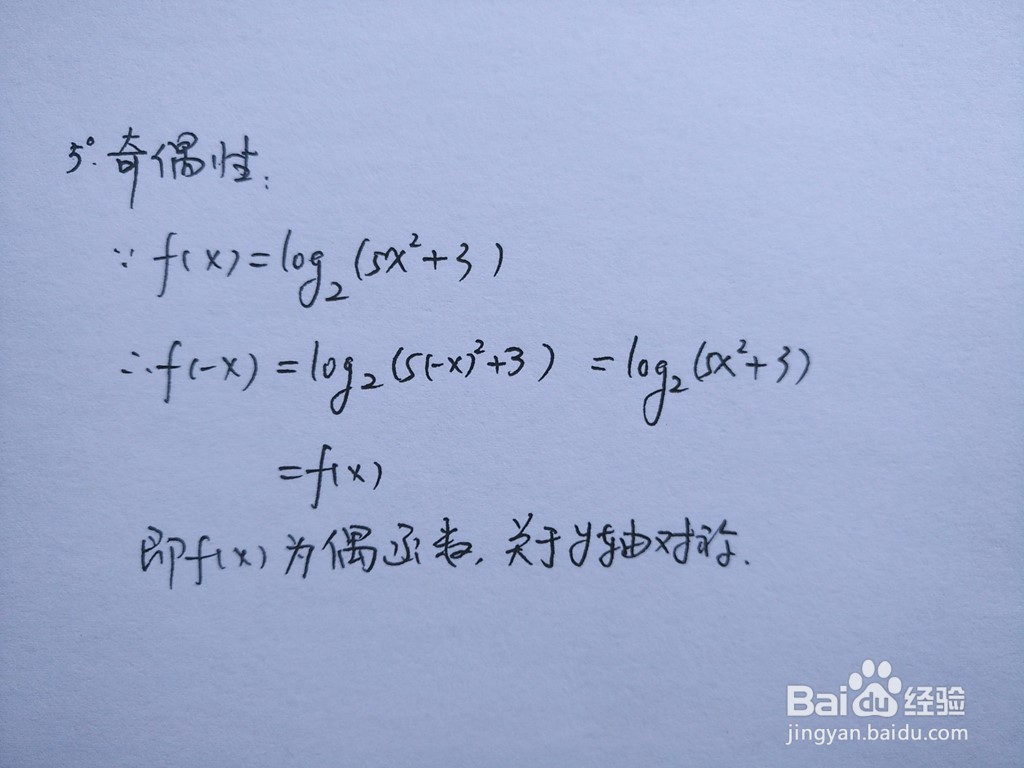 5°.奇偶性:
∵ f(x)=log₂(5x²+3)
∴f(-x)=log₂(5(-x)²+3) =log₂(5x²+3)
=f(x)
即f(x)为偶函数,关于y轴对称.
Bai du 经验
jingyan.baidu.com